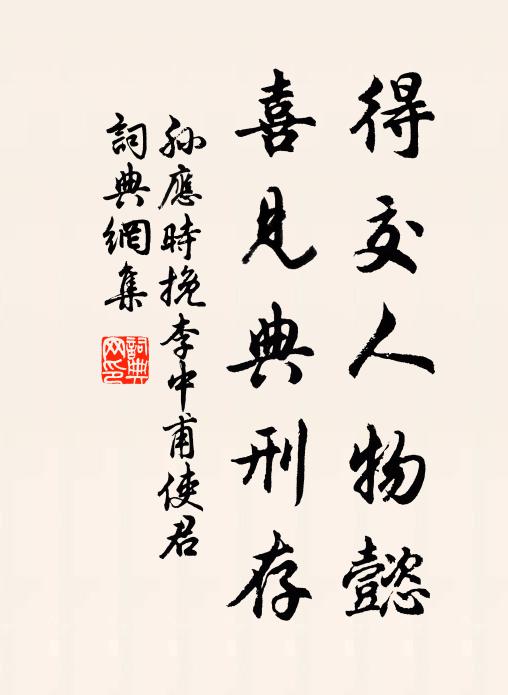 得交人物懿
喜見典刑存
孫應時挽李中甫使君
詞典網集
詞典网印